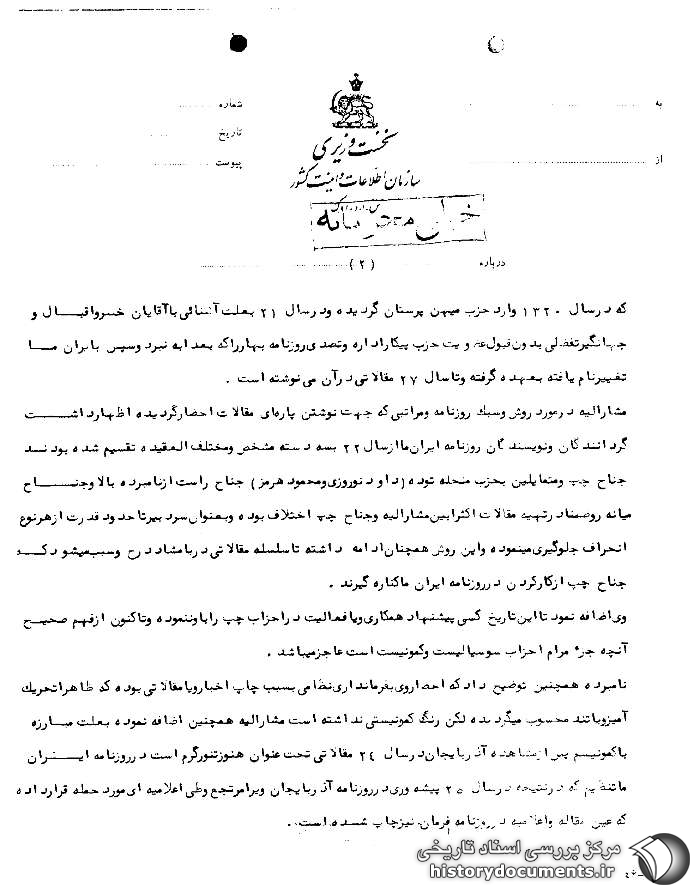 به
شماره
تاریخ
از
پیوست
نخست وزیری
سازمان اطلاعات و امنیت کشور
خیلی محرمانه
درباره (۲)
که در سال ۱۳۲۰ وارد حزب میهن پرستان گردیده و در سال ۲۱ بعلت آشنائی با آقایان خسرو اقبال و
جهانگیر تفضلی بدون قبول عضویت حزب پیکار اداره و تصدی روزنامه بهار را که بعدا به نبرد و سپس بایران ما
تغییر نام یافته بعهده گرفته و تا سال ۲۷ مقالاتی در آن می نوشته است .
مشارالیه در مورد روش و سبک روزنامه و مراتبی که جهت نوشتن پاره‌ای مقالات احضار گردیده اظهار داشت
گردانندگان و نویسندگان روزنامه ایران ما از سال ۲۲ بسه دسته مشخص و مختلف العقیده تقسیم شده بودند
جناح چپ و متمایلین بحزب منحله توده (داود نوروزی و محمود هرمز) جناح راست از نامبرده بالا و جناح
میانه رو ضمنا در تهیه مقالات اکثرا بین مشارالیه و جناح چپ اختلاف بوده و بعنوان سردبیر تا حدود قدرت از هر نوع
انحراف جلوگیری مینموده و این روش همچنان ادامه داشته تا سلسله مقالاتی در با مشاد درج و سبب میشود که
جناح چپ از کار کردن در روزنامه ایران ما کناره گیرند .
وی اضافه نمود تا این تاریخ کسی پیشنهاد همکاری و یا فعالیت در احزاب چپ را باو ننموده و تاکنون از فهم صحیح
آنچه جزء مرام احزاب سوسیالیست و کمونیست است عاجز میباشد .
نامبرده همچنین توضیح داد که احضار وی بفرمانداری نظامی بسبب چاپ اخبار و یا مقالاتی بوده که ظاهرا تحریک
آمیز و یا تند محسوب میگردیده لکن رنگ کمونیستی نداشته است مشارالیه همچنین اضافه نموده بعلت مبارزه
با کمونیسم پس از مشاهده آذربایجان در سال ۲۴ مقالاتی تحت عنوان هنوز تنور گرم است در روزنامه ایران
ما تنظیم که در نتیجه در سال ۲۵ پیشه وری در روزنامه آذربایجان ویرا مرتجع و طی اعلامیه ای مورد حمله قرار داده
که عین مقاله و اعلامیه در روزنامه فرمان نیز چاپ شده است .
مرکز بررسی اسناد تاریخی
historydocuments.ir